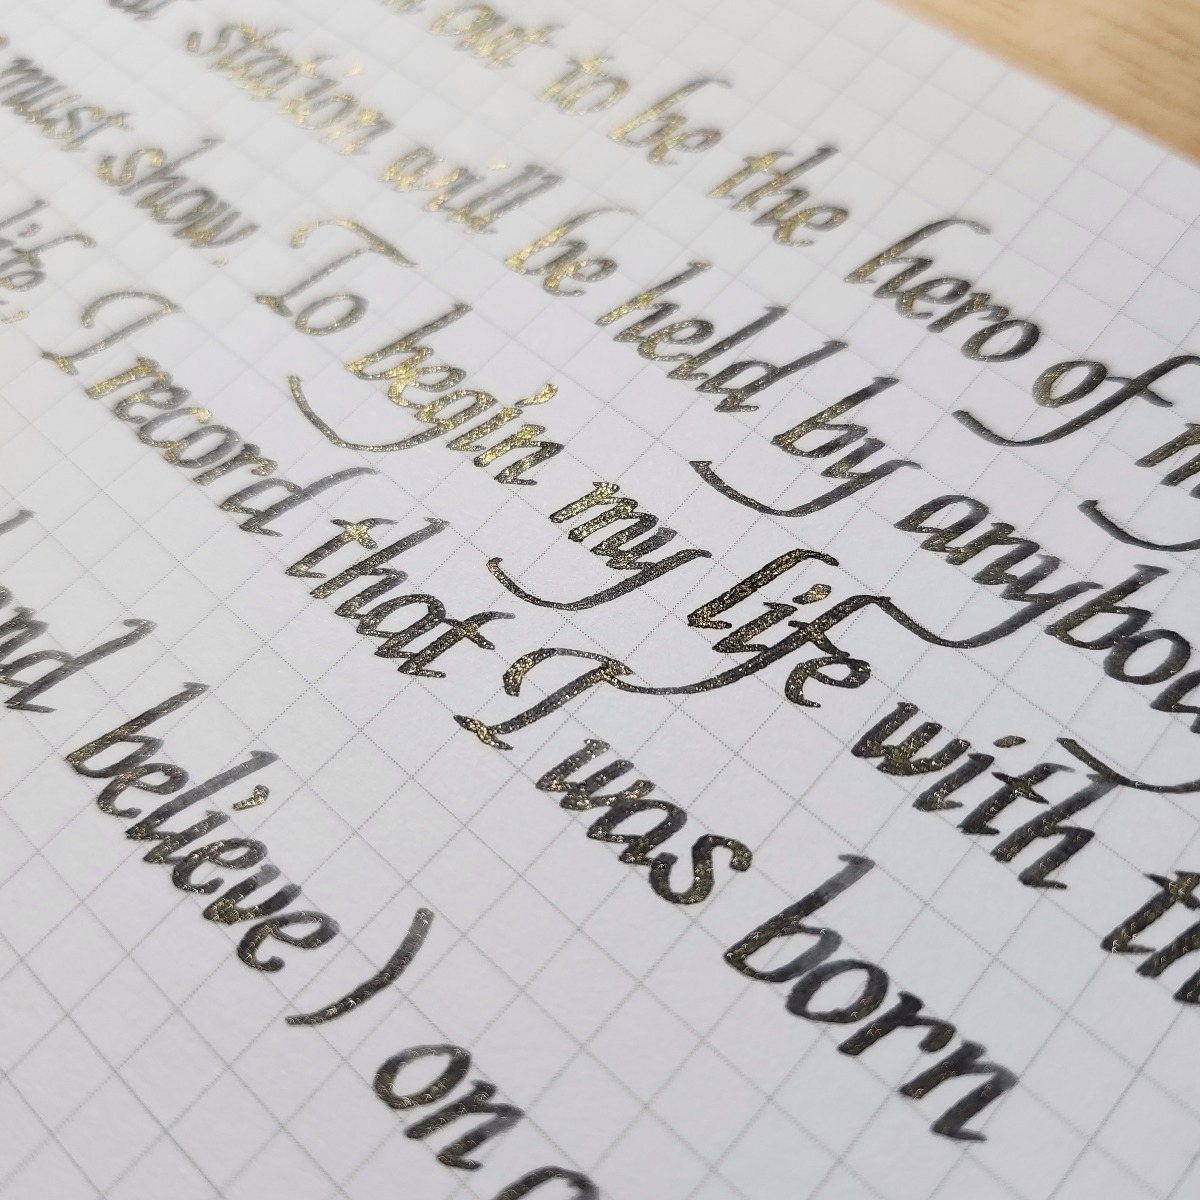 out to be the hero of
station will be held by
must show. To begin my life with
life, I record that I was born
believe) on